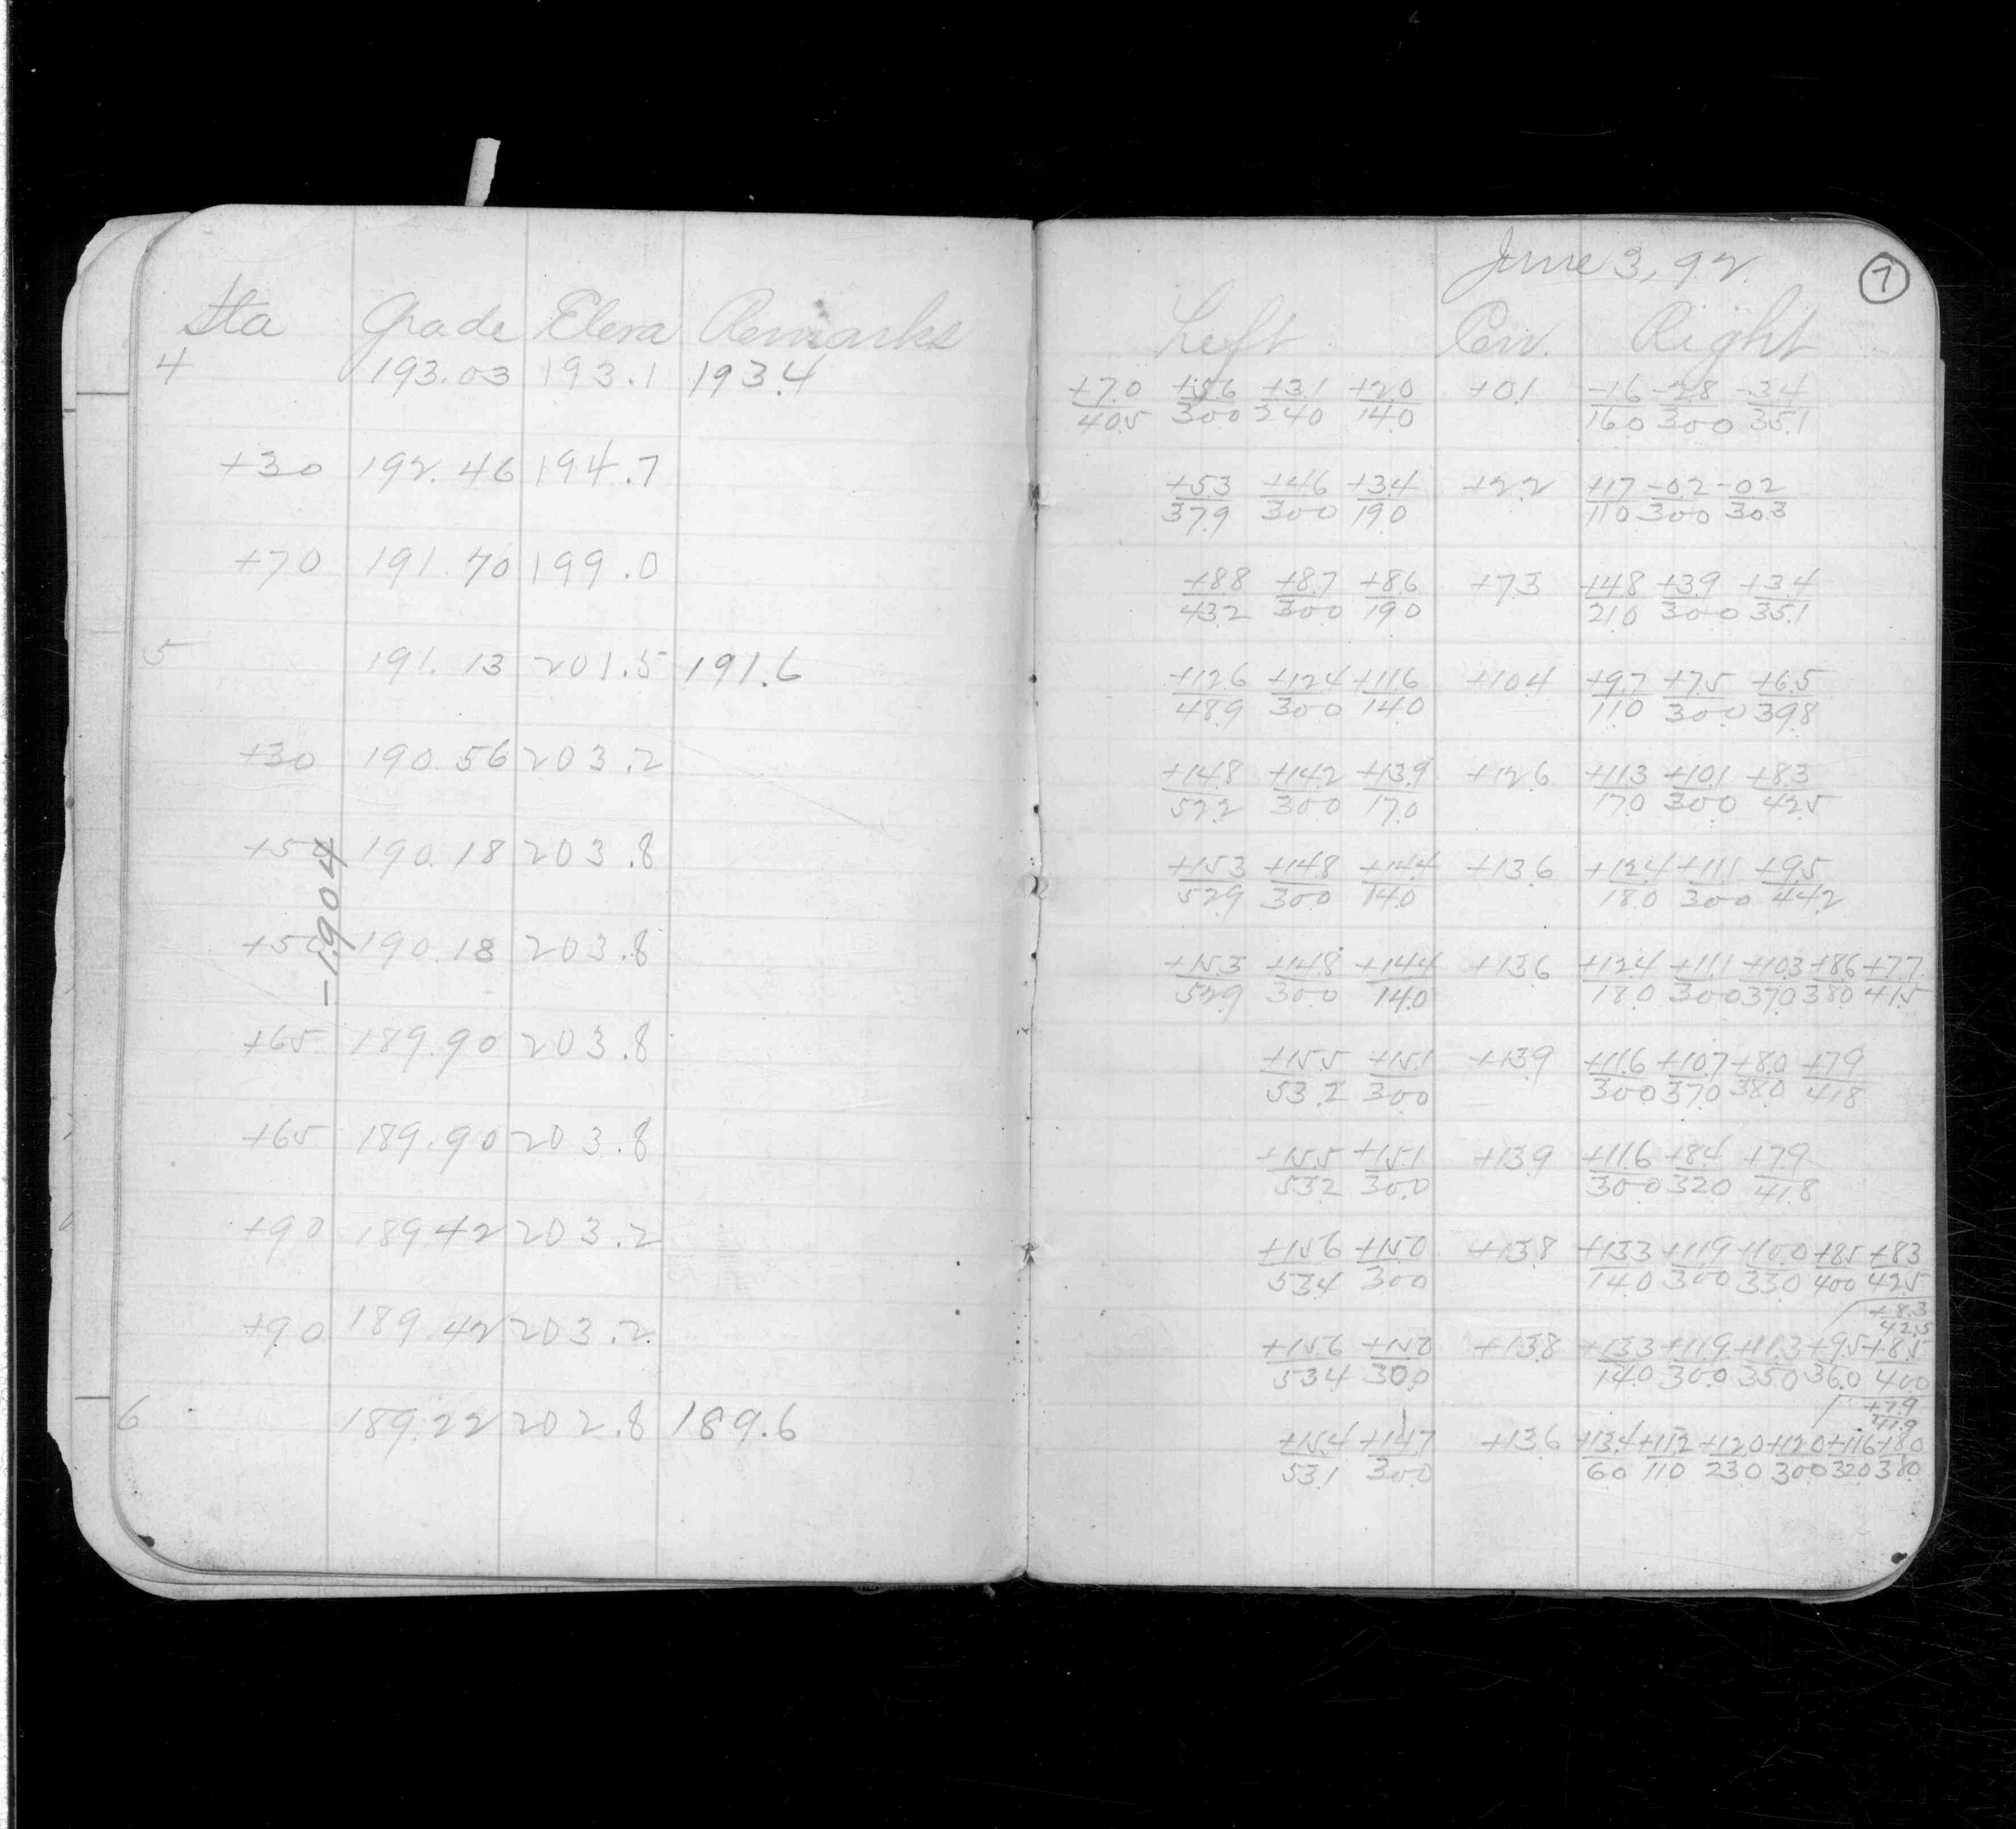 June 3, 92.
7
Sta Grade Eleva Remarks Left Cen. Right
4 193.03 193.1 193.4 +7.0/40.5 +5.6/30.0 +3.1/24.0 +2.0/14.0 +0.1 -1.6/16.0 -2.8/30.0 -3.4/35.1
+30 192.46 194.7 +5.3/37.9 +4.6/30.0 +3.4/19.0 +2.2 +1.7/11.0 -0.2/30.0 -0.2/30.3
+70 191.70 199.0 +8.8/43.2 +8.7/30.0 +8.6/19.0 +7.3 +4.8/21.0 +3.9/30.0 +3.4/35.1
5 191.13 201.5 191.6 +12.6/48.9 +12.4/30.0 +11.6/14.0 +10.4 +9.7/11.0 +7.5/30.0 +6.5/39.8
+30 190.56 203.2 +14.8/52.2 +14.2/30.0 +13.9/17.0 +12.6 +11.3/17.0 +10.1/30.0 +8.3/42.5
+50 190.18 203.8 +15.3/52.9 +14.8/30.0 +14.4/14.0 +13.6 +12.4/18.0 +11.1/30.0 +9.5/44.2
-1.904
+50 190.18 203.8 +15.3/52.9 +14.8/30.0 +14.4/14.0 +13.6 +12.4/18.0 +11.1/30.0 +10.3/37.0 +8.6/38.0 +7.7/41.5
+65 189.90 203.8 +15.5/53.2 +15.1/30.0 +13.9 +11.6/30.0 +10.7/37.0 +8.0/38.0 +7.9/41.8
+65 189.90 203.8 +15.5/53.2 +15.1/30.0 +13.9 +11.6/30.0 +8.4/32.0 +7.9/41.8
+90 189.42 203.2 +15.6/53.4 +15.0/30.0 +13.8 +13.3/14.0 +11.9/30.0 +10.0/33.0 +8.5/40.0 +8.3/42.5
+8.3/42.5
+90 189.42 203.2 +15.6/53.4 +15.0/30.0 +13.8 +13.3/14.0 +11.9/30.0 +11.3/35.0 +9.5/36.0 +8.5/40.0
+7.9/41.9
6 189.22 202.8 189.6 +15.4/53.1 +14.7/30.0 +13.6 +13.4/6.0 +11.2/11.0 +12.0/23.0 +12.0/30.0 +11.6/32.0 +8.0/38.0